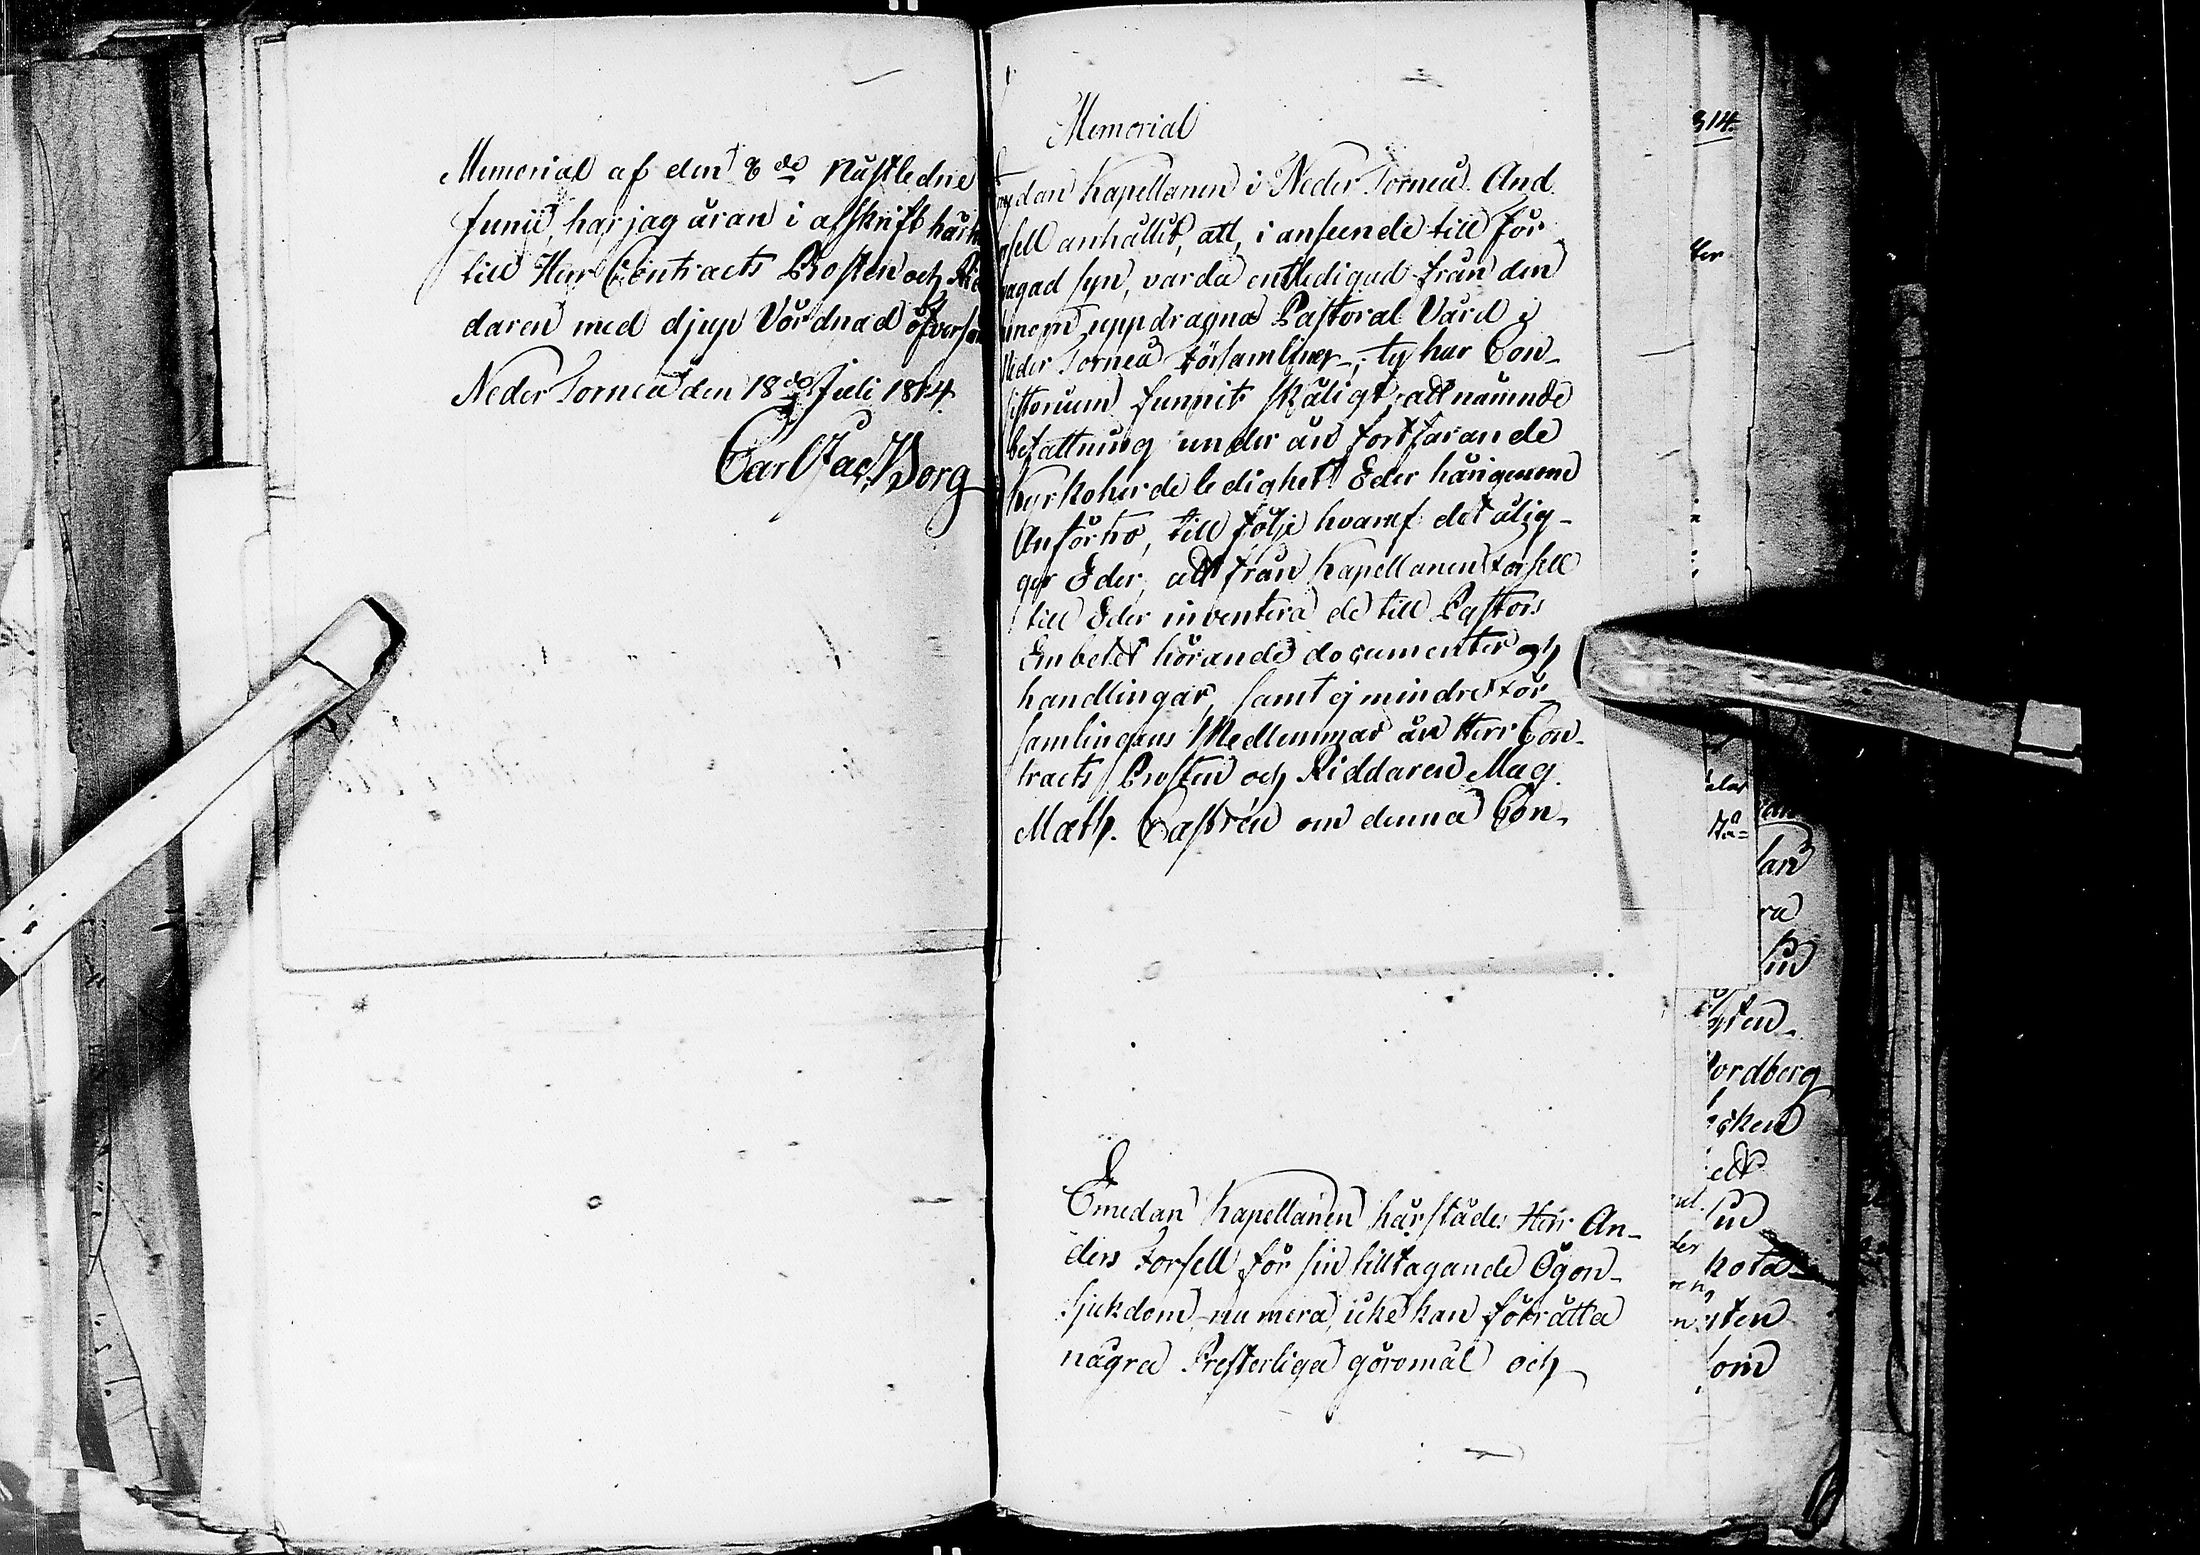 Memorial af den 8de nästledne
Junii, har jag äran i afskrift härm
till Herr Contracts Prosten och Rid
daren med djup Vördnad öfversän
Neder Torneå den 18de Juli 1814.
Carl Jac. Borg
Memorial
medan Kapellanen i Neder Torneå And.
rsell anhållit, att, i anseende till för
svagad syn, varda entledigad från den
honom uppdragna Pastoral Vård i
Neder Torneå Församling, ty har Con-
sistorium funnit skäligt, att nämnde
befattning under än fortfarande
Kyrkoherde ledighet Eder härigenom
Anförtro, till följe hvaraf det ålig-
ger Eder, att från Kapellanen Forsell
till Eder inventera de till Pastors
Embetet hörande documenter och
handlingar, samt ej mindre För-
samlingens Medlemmar än Herr Con-
tracts Prosten och Riddaren Mag.
Math. Castrén om denna Con-
Emedan Kapellanen härstädes Herr An-
ders Forsell för sin tilltagande Ögon-
sjukdom nu mera icke kan förrätta
några Presterliga göromål och
314.
ter
lan
ra
sten
Nordberg
öken
sten
som